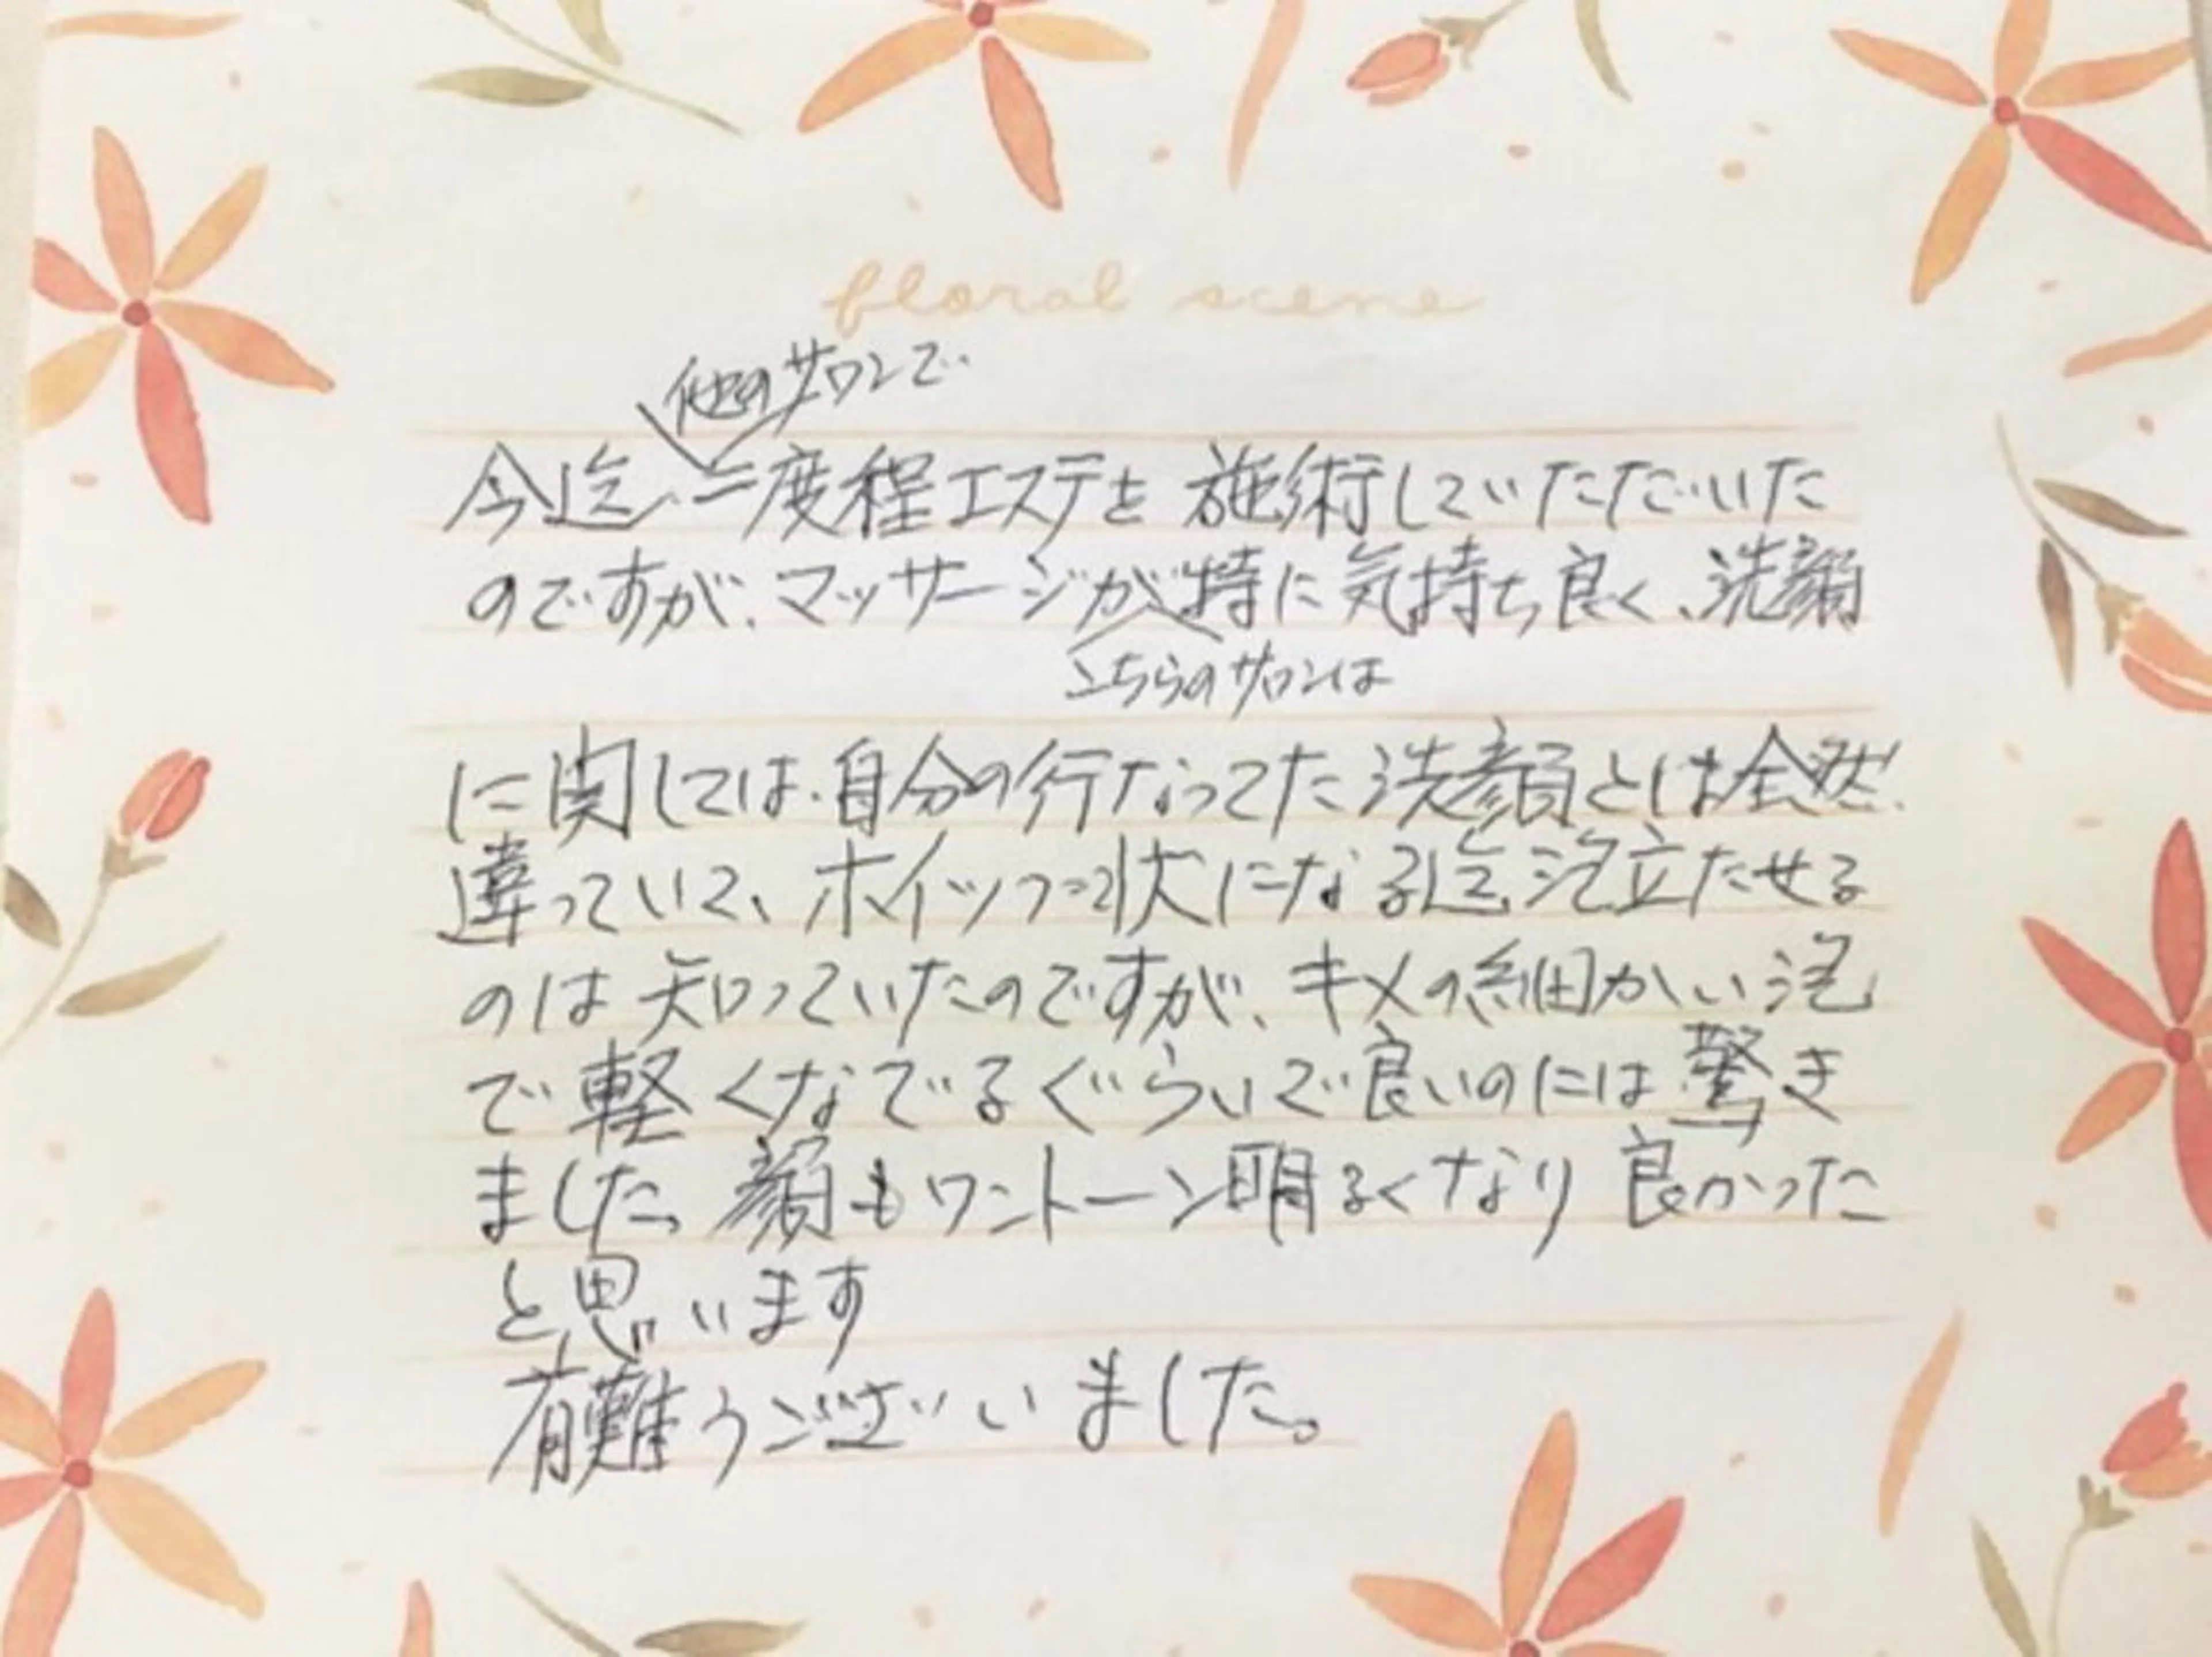 floral scene
他のサロンで
今迄、二度程エステを施術していただいた
のですが、マッサージが特に気持ち良く、洗顔
こちらのサロンは
に関しては、自分の行なってた洗顔とは全然
違っていて、ホイップ状になる迄泡立たせる
のは知っていたのですが、キメの細かい泡
で軽くなでるぐらいで良いのには驚き
ました。顔もワントーン明るくなり良かった
と思います
有難うございました。